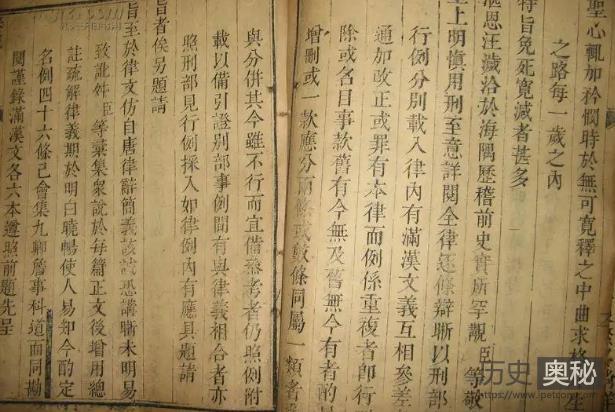 聖心輒加矜憫時於無可寬釋之中曲求
之路每一歲之內
特旨免死寬減者甚多
恩汪濊洽於海隅歷稽前史實所罕覯臣等敬
上明慎用刑至意詳閱全律逐條辯晰以刑部
行例分別載入律內有滿漢文義互相參差
通加改正或罪有本律而例係重複者即行
除或名目事款舊有今無及舊無今有者酌
增刪或一款應分兩條或數條同屬一類者
與分併其今雖不行而宜備叅考者仍照例附
載以備引證別部事例間有與律義相合者亦
照刑部見行例採入如律例內有應具題請
旨者俟另題請
旨至於律文仿自唐律辭簡義該誠恐講晰未明易
致訛舛臣等彙集衆說於每篇正文後增用總
註疏解律義期於明白曉暢使人易知今酌定
名例四十六條已會集九卿詹事科道面同勘
閱謹錄滿漢文各六本遵照前題先呈
历史奥秘